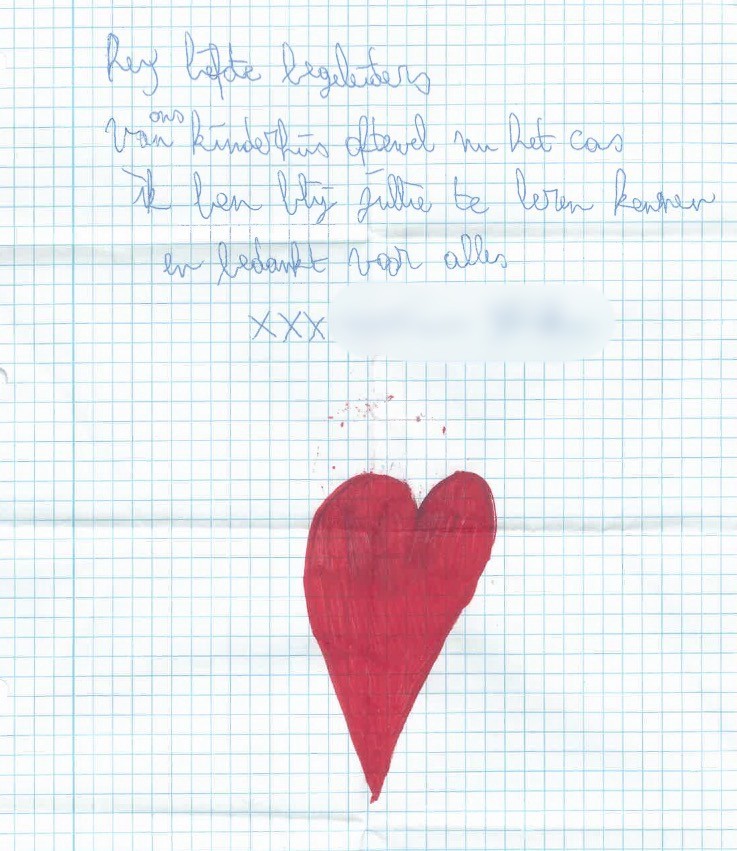 Hey liefste begeleiders
Van ons kinderhuis oftewel nu het cas
ik ben blij jullie te leren kennen
en bedankt voor alles
XXX